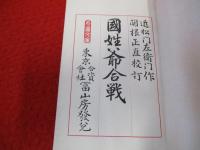 近松門左衞門作
關根正直校訂
國姓爺合戰
東京
合資
會社
冨山房發兌